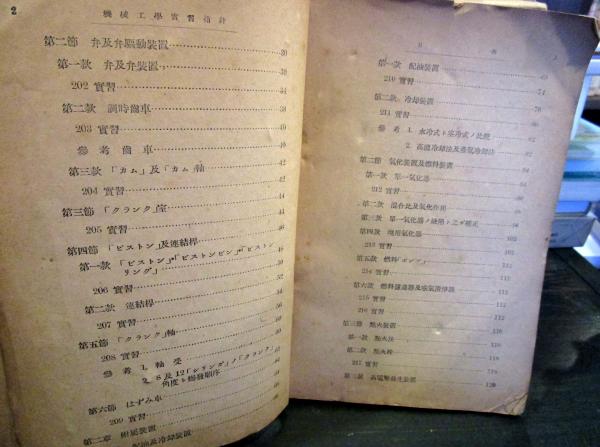 2
機械工學實習指針
第二節 弁及弁驅動裝置 30
第一款 弁及弁裝置 30
202 實習 34
第二款 調時齒車 38
203 實習 40
參考 齒車 40
第三款 「カム」及「カム」軸 42
204 實習 42
第三節 「クランク」室 44
205 實習 44
第四節 「ピストン」及連結桿 46
第一款 「ピストン」「ピストンピン」「ピスト
ンリング」 48
206 實習 50
第二款 連結桿 54
207 實習 56
第五節 「クランク」軸
208 實習
參考 1. 軸受
2. 8及12「シリンダ」ノ「クランク」
角度ト爆發順序
第六節 はずみ車
209 實習
第二章 附屬裝置
目次
第一款 配油裝置
210 實習 74
第二款 冷却裝置 76
211 實習
參考 1. 水冷式ト空冷式ノ比較
2. 高溫冷却法及蒸氣冷却法
第二節 氣化裝置及燃料裝置 84
第一款 單一氣化器
212 實習
第二款 混合比及氣化作用
第三款 單一氣化器ノ缺陷ト之ガ補正
第四款 現用氣化器 102
213 實習
第五款 燃料「ポンプ」
214 實習
第六款 燃料濾過器及吸氣清淨器 112
215 實習 112
216 實習
第三節 點火裝置
第一款 點火法 116
第二款 點火栓
217 實習
第三款 高電壓發生裝置 120